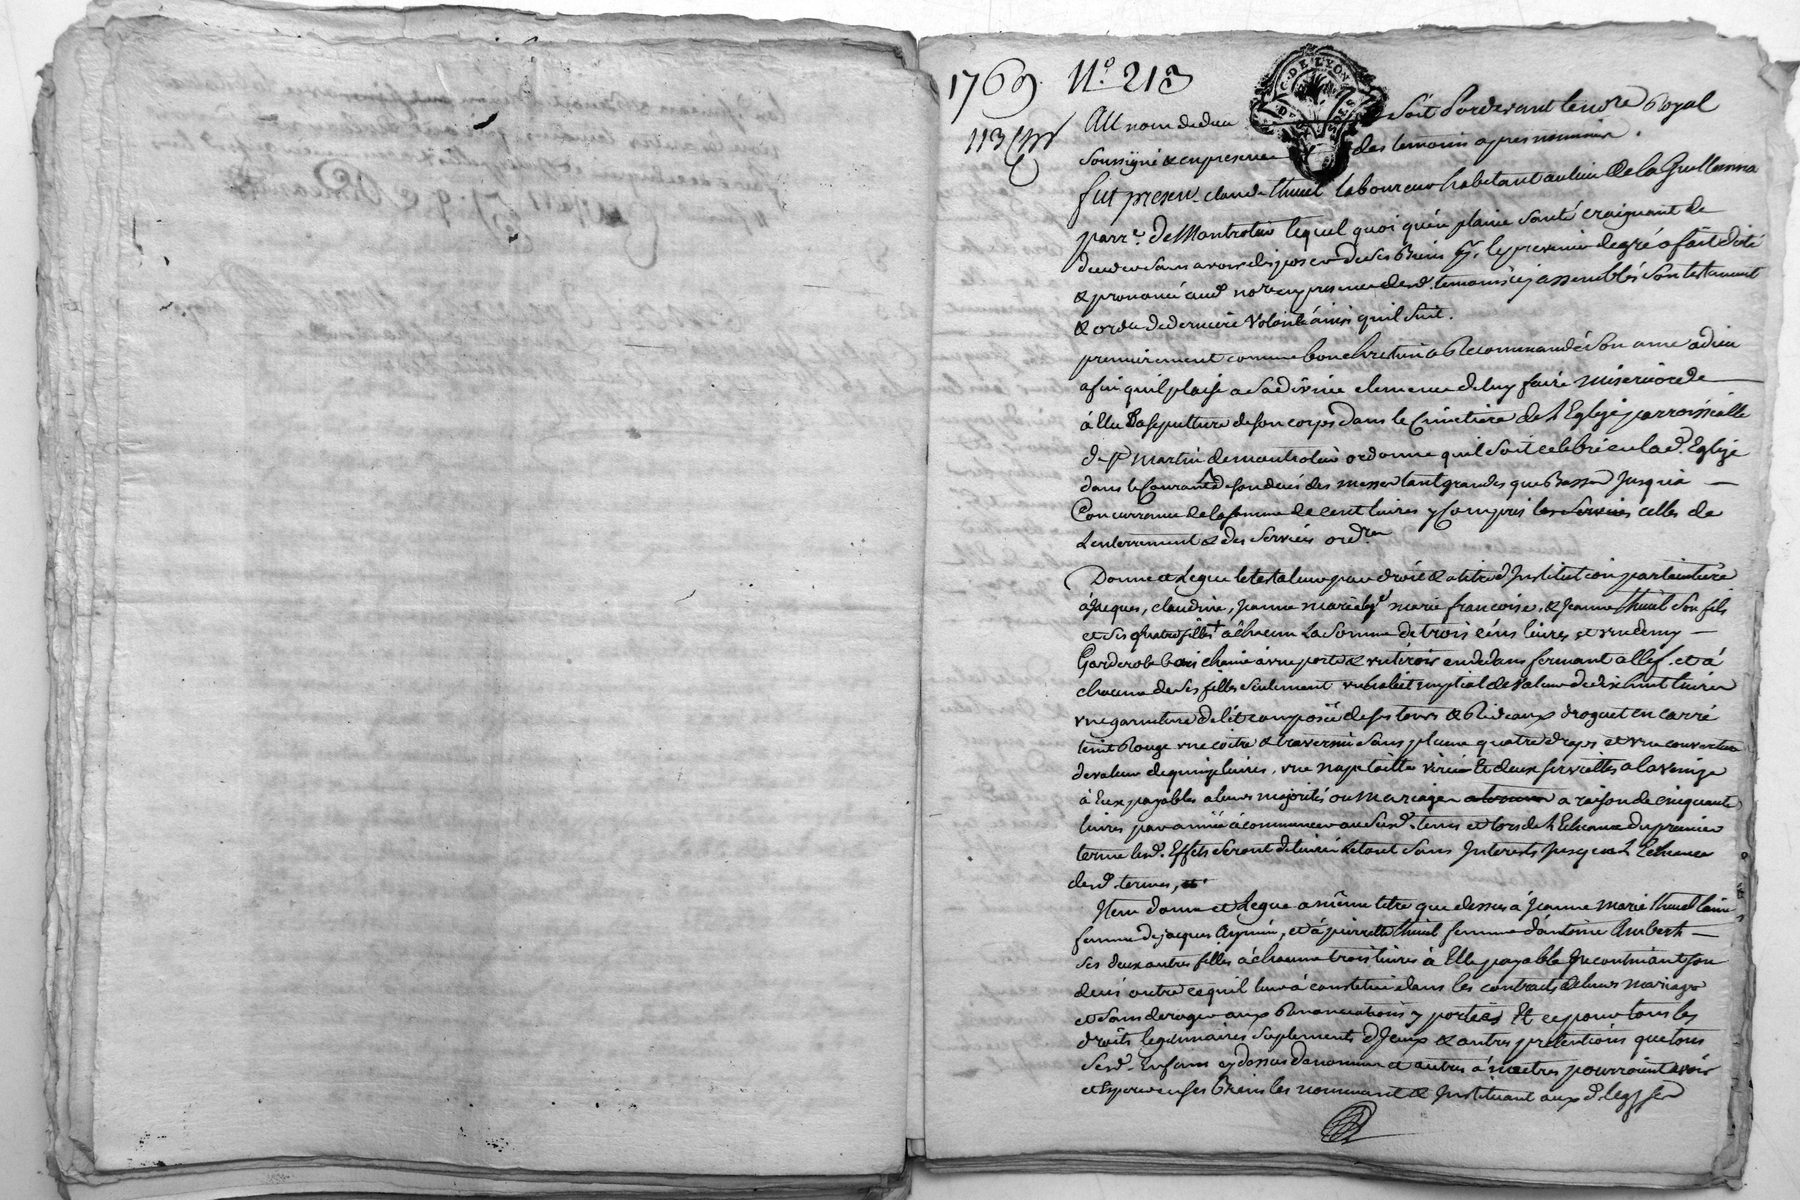 1769. N.° 213
113
C. DE LYON
AU nom de dieu soit Pardevant le no.re Royal
soussigné & en presence des temoins apres nommés.
fut present claude Thuel laboureur habitant au lieu de la Guillerma
parr.e de Montrotier lequel quoi qu'en plaine santé craignant de
deceder sans avoir disposer de ses Biens le premier degré a fait dicté
& prononcé aud no.re en presence desd. temoins y assemblés son testament
& ordre de derniere Volonté ainsi quil suit.
premierement comme bon chretien a Recommandé son ame a dieu
afin quil plaise a sa divine clemence de luy faire misericorde
à Elu la sepulture de son corps dans le Cimetiere de l'Eglise parroissialle
de St martin de montrotier ordonne quil soit celebré en lad. Eglise
dans le Courant de son deces des messes tant grandes que Basses Jusqu'a
Concurrance de la somme de cent livres y Compris les Services celles de
L'enterrement & des Services ord.res
Donne et Legue le testateur par droit & a titre d'Institution particuliere
à Jaques, claudine, Jeanne marie marie francoise, & Jeanne Thuel son fils
et ses quatre filles à chacun La Somme de trois cens livres et un demy
Garderobe bois chaine à une porte & un tiroir en dedans fermant a clef. et à
chacune de ses filles seulement un habit nuptial de Valeur de dixhuit livres
une garniture de lit composée de ses tours & Rideaux droguet en carré
teint Rouge une coitre & traversin sans plume quatre draps et une couverture
de valeur de quinze livres, une nape toille et deux serviettes a la venise
à Eux payables a leurs majorités ou mariages a raison de cinquante
livres par année à commencer au susd. tems et lors de l'Echeance du premier
terme lesd. Effets seront delivrés Le tout sans Interests Jusques a L'Echeance
desd. termes,
Item donne et Legue a même titre que dessus à Jeanne Marie Thuel l'ainé
femme de jacques Aymin, et à pierrette Thuel femme d'antoine Aubert
ses deux autres filles à chacune trois livres à Elle payable Incontinant son
deces outre ce quil leur à constitué dans les contracts de leurs mariages
et sans deroger aux Renonciations y portées Et ce pour tous les
droits legitimaires suplements d'Iceux & autres pretentions que tous
sesd. Enfans cy dessus denommés et autres à naitres pourroient avoir
et Esperer en ses Biens les nommant & Instituant aux d. legs ses